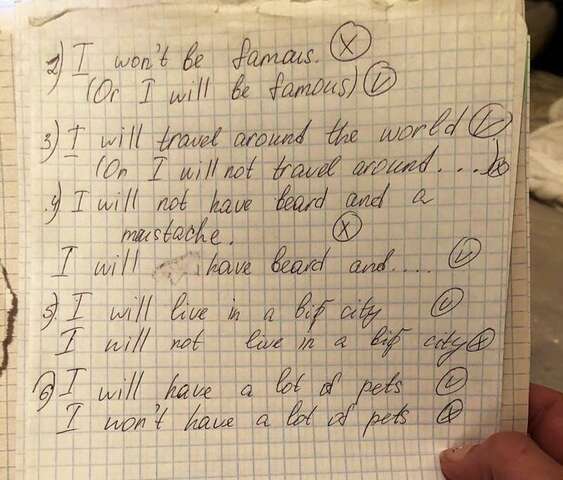 2) I won't be famous. X
(Or I will be famous) V
3) I will travel around the world V
(Or I will not travel around.... X
4) I will not have beard and a
mustache. X
I will have beard and.... V
5) I will live in a big city V
I will not live in a big city X
6) I will have a lot of pets V
I won't have a lot of pets X